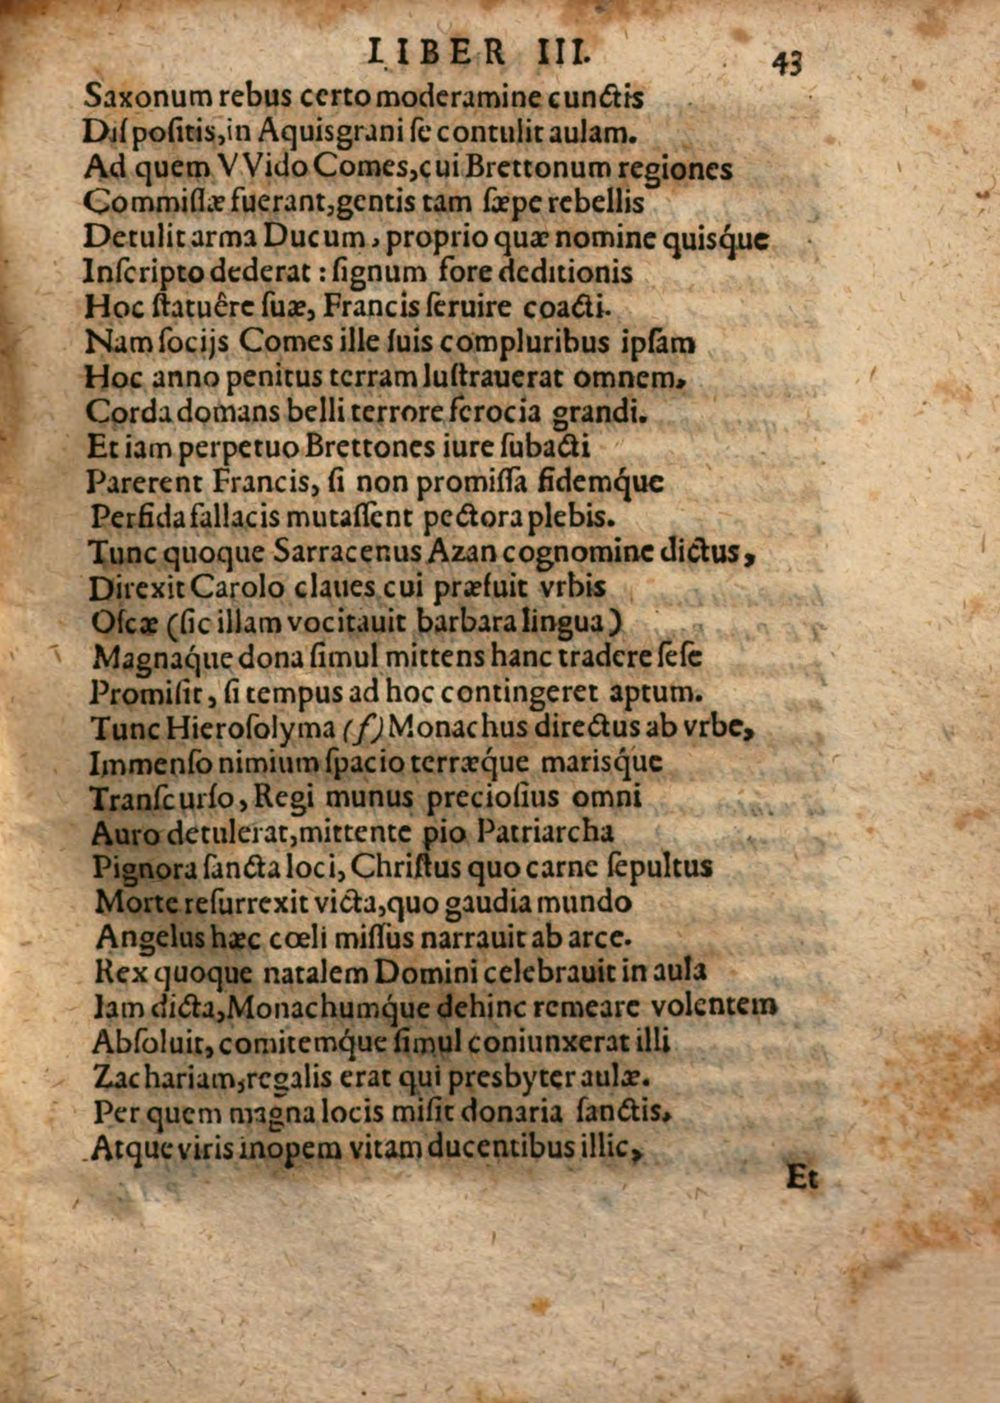 LIBER III. 43
Saxonum rebus certo moderamine cunctis
Diſpoſitis, in Aquisgrani ſe contulit aulam.
Ad quem VVido Comes, cui Brettonum regiones
Commiſſæ fuerant, gentis tam ſæpe rebellis
Detulit arma Ducum, proprio quæ nomine quisq́ue
Inſcripto dederat : ſignum fore deditionis
Hoc ſtatuêre ſuæ, Francis ſeruire coacti.
Nam ſocijs Comes ille ſuis compluribus ipſam
Hoc anno penitus terram luſtrauerat omnem,
Corda domans belli terrore ferocia grandi.
Et iam perpetuo Brettones iure ſubacti
Parerent Francis, ſi non promiſſa fidemq́ue
Perfida fallacis mutaſſent pectora plebis.
Tunc quoque Sarracenus Azan cognomine dictus,
Direxit Carolo claues cui præfuit vrbis
Oſcæ (ſic illam vocitauit barbara lingua)
Magnaq́ue dona ſimul mittens hanc tradere ſeſe
Promiſit, ſi tempus ad hoc contingeret aptum.
Tunc Hieroſolyma (f) Monachus directus ab vrbe,
Immenſo nimium ſpacio terræq́ue marisq́ue
Tranſcurſo, Regi munus precioſius omni
Auro detulerat, mittente pio Patriarcha
Pignora ſancta loci, Chriſtus quo carne ſepultus
Morte reſurrexit victa, quo gaudia mundo
Angelus hæc cœli miſſus narrauit ab arce.
Rex quoque natalem Domini celebrauit in aula
Iam dicta, Monachumq́ue dehinc remeare volentem
Abſoluit, comitemq́ue ſimul coniunxerat illi
Zachariam, regalis erat qui presbyter aulæ.
Per quem magna locis miſit donaria ſanctis,
Atque viris inopem vitam ducentibus illic,
Et